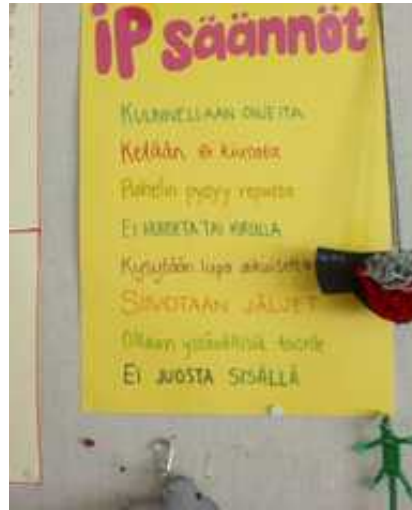 iP säännöt
KUUNNELLAAN OHJEITA
Ketään ei kiusata
Puhelin pysyy repussa
EI HUUDETA TAI KIROILLA
Kysytään lupa aikuiselta
SIIVOTAAN JÄLJET
Ollaan ystävällisiä toisille
EI JUOSTA SISÄLLÄ